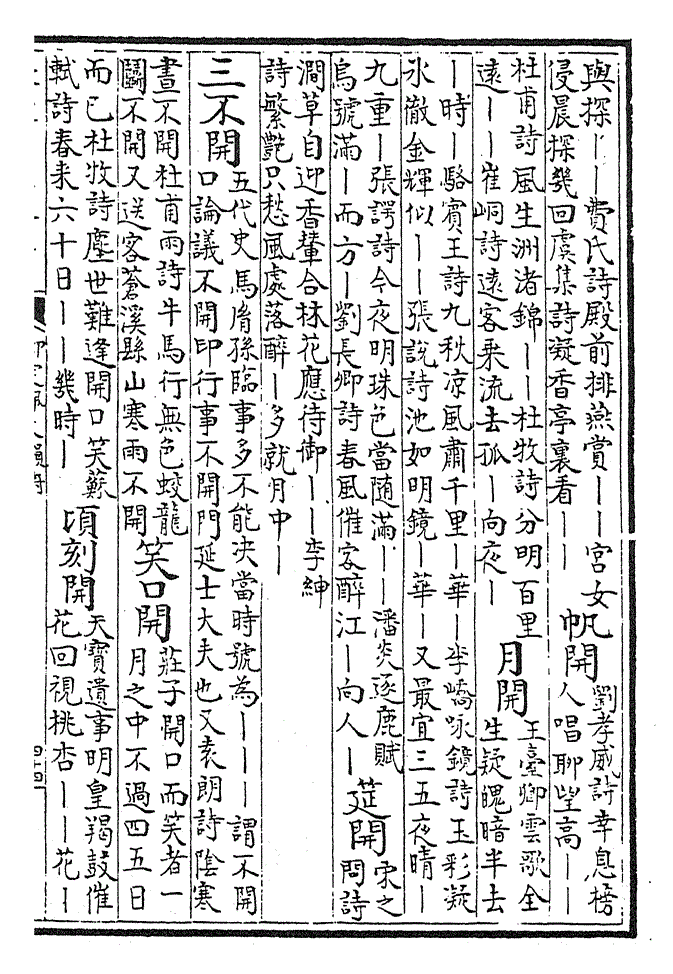 與探｜｜費氏詩殿前排燕賞｜｜宮女
侵晨探幾回虞集詩凝香亭裏看｜｜
帆開
劉孝威詩幸息榜
人唱聊望高｜｜
杜甫詩風生洲渚錦｜｜杜牧詩分明百里
遠｜｜崔峒詩遠客乘流去孤｜向夜｜
月開
王臺卿雲歌全
生疑魄暗半去
｜時｜駱賓王詩九秋涼風肅千里｜華｜李嶠咏鏡詩玉彩凝
氷徹金輝似｜｜張說詩池如明鏡｜華｜又最宜三五夜晴｜
九重｜張諤詩今夜明珠色當随滿｜｜潘炎逐鹿賦
烏號滿｜而方｜劉長卿詩春風催客醉江｜向人｜
筵開
宋之
問詩
澗草自迎香輦合林花應待御｜｜李紳
詩繁艶只愁風處落醉｜多就月中｜
三不開
五代史馬胤孫臨事多不能决當時號為｜｜｜謂不開
口論議不開印行事不開門延士大夫也又袁朗詩陰寒
晝不開杜甫雨詩牛馬行無色蛟龍
鬭不開又送客蒼溪縣山寒雨不開
笑口開
莊子開口而笑者一
月之中不過四五日
而已杜牧詩塵世難逢開口笑蘇
軾詩春来六十日｜｜幾時｜
頃刻開
天寶遺事明皇羯鼓催
花回視桃杏｜｜花｜